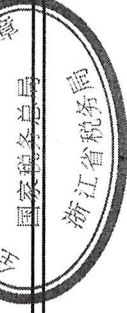 国家税务总局
浙江省税务局